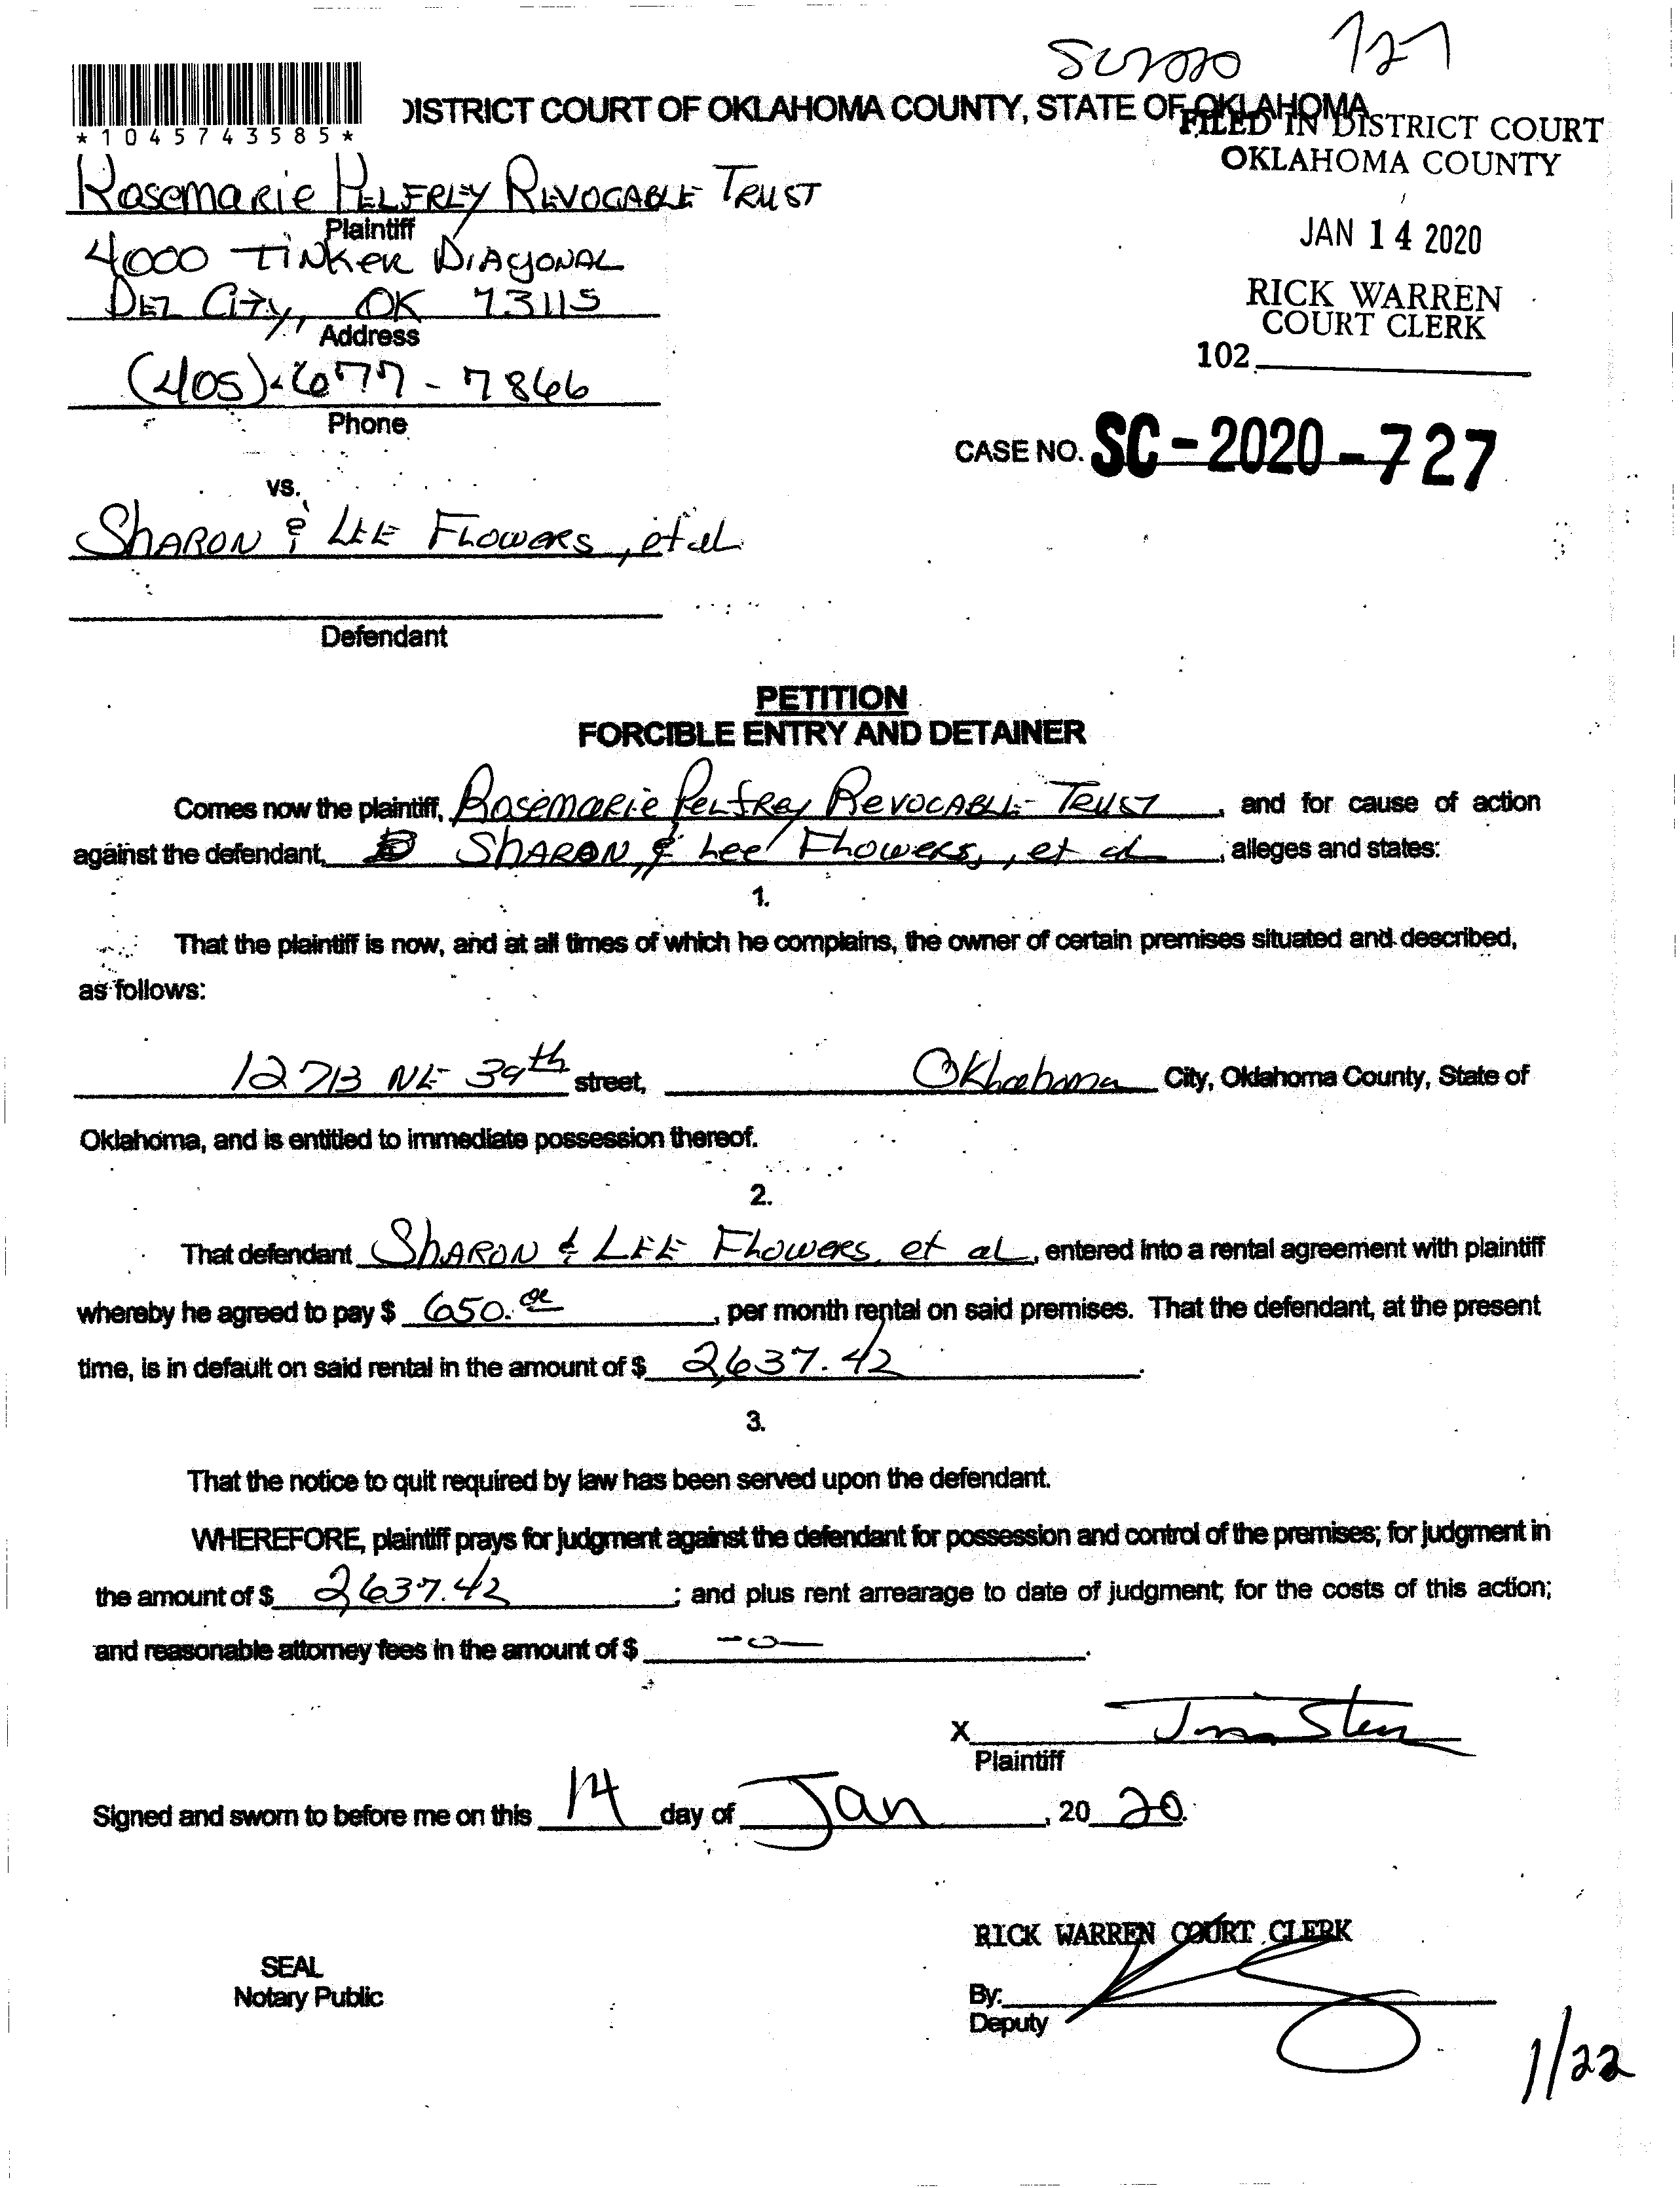 SC2020 727
*1045743585*
DISTRICT COURT OF OKLAHOMA COUNTY, STATE OF OKLAHOMA
FILED IN DISTRICT COURT
OKLAHOMA COUNTY
JAN 14 2020
RICK WARREN
COURT CLERK
102
Rosemarie Pelfrey Revocable Trust
Plaintiff
4000 Tinker Diagonal
Del City, OK 73115
Address
(405)-677-7866
Phone
CASE NO. SC-2020-727
vs.
Sharon & Lee Flowers, et al
Defendant
PETITION
FORCIBLE ENTRY AND DETAINER
Comes now the plaintiff, Rosemarie Pelfrey Revocable Trust, and for cause of action
against the defendant, Sharon & Lee Flowers, et al, alleges and states:
1.
That the plaintiff is now, and at all times of which he complains, the owner of certain premises situated and described,
as follows:
NE 39th street, Oklahoma City, Oklahoma County, State of
Oklahoma, and is entitled to immediate possession thereof.
2.
That defendant Sharon & Lee Flowers, et al, entered into a rental agreement with plaintiff
whereby he agreed to pay $ 650.00, per month rental on said premises. That the defendant, at the present
time, is in default on said rental in the amount of $ 2,637.42.
3.
That the notice to quit required by law has been served upon the defendant.
WHEREFORE, plaintiff prays for judgment against the defendant for possession and control of the premises; for judgment in
the amount of $ 2,637.42; and plus rent arrearage to date of judgment; for the costs of this action;
and reasonable attorney fees in the amount of $ -0-.
X
Plaintiff
Signed and sworn to before me on this 14 day of Jan, 20 20.
RICK WARREN COURT CLERK
SEAL
Notary Public
By:
Deputy
1/22